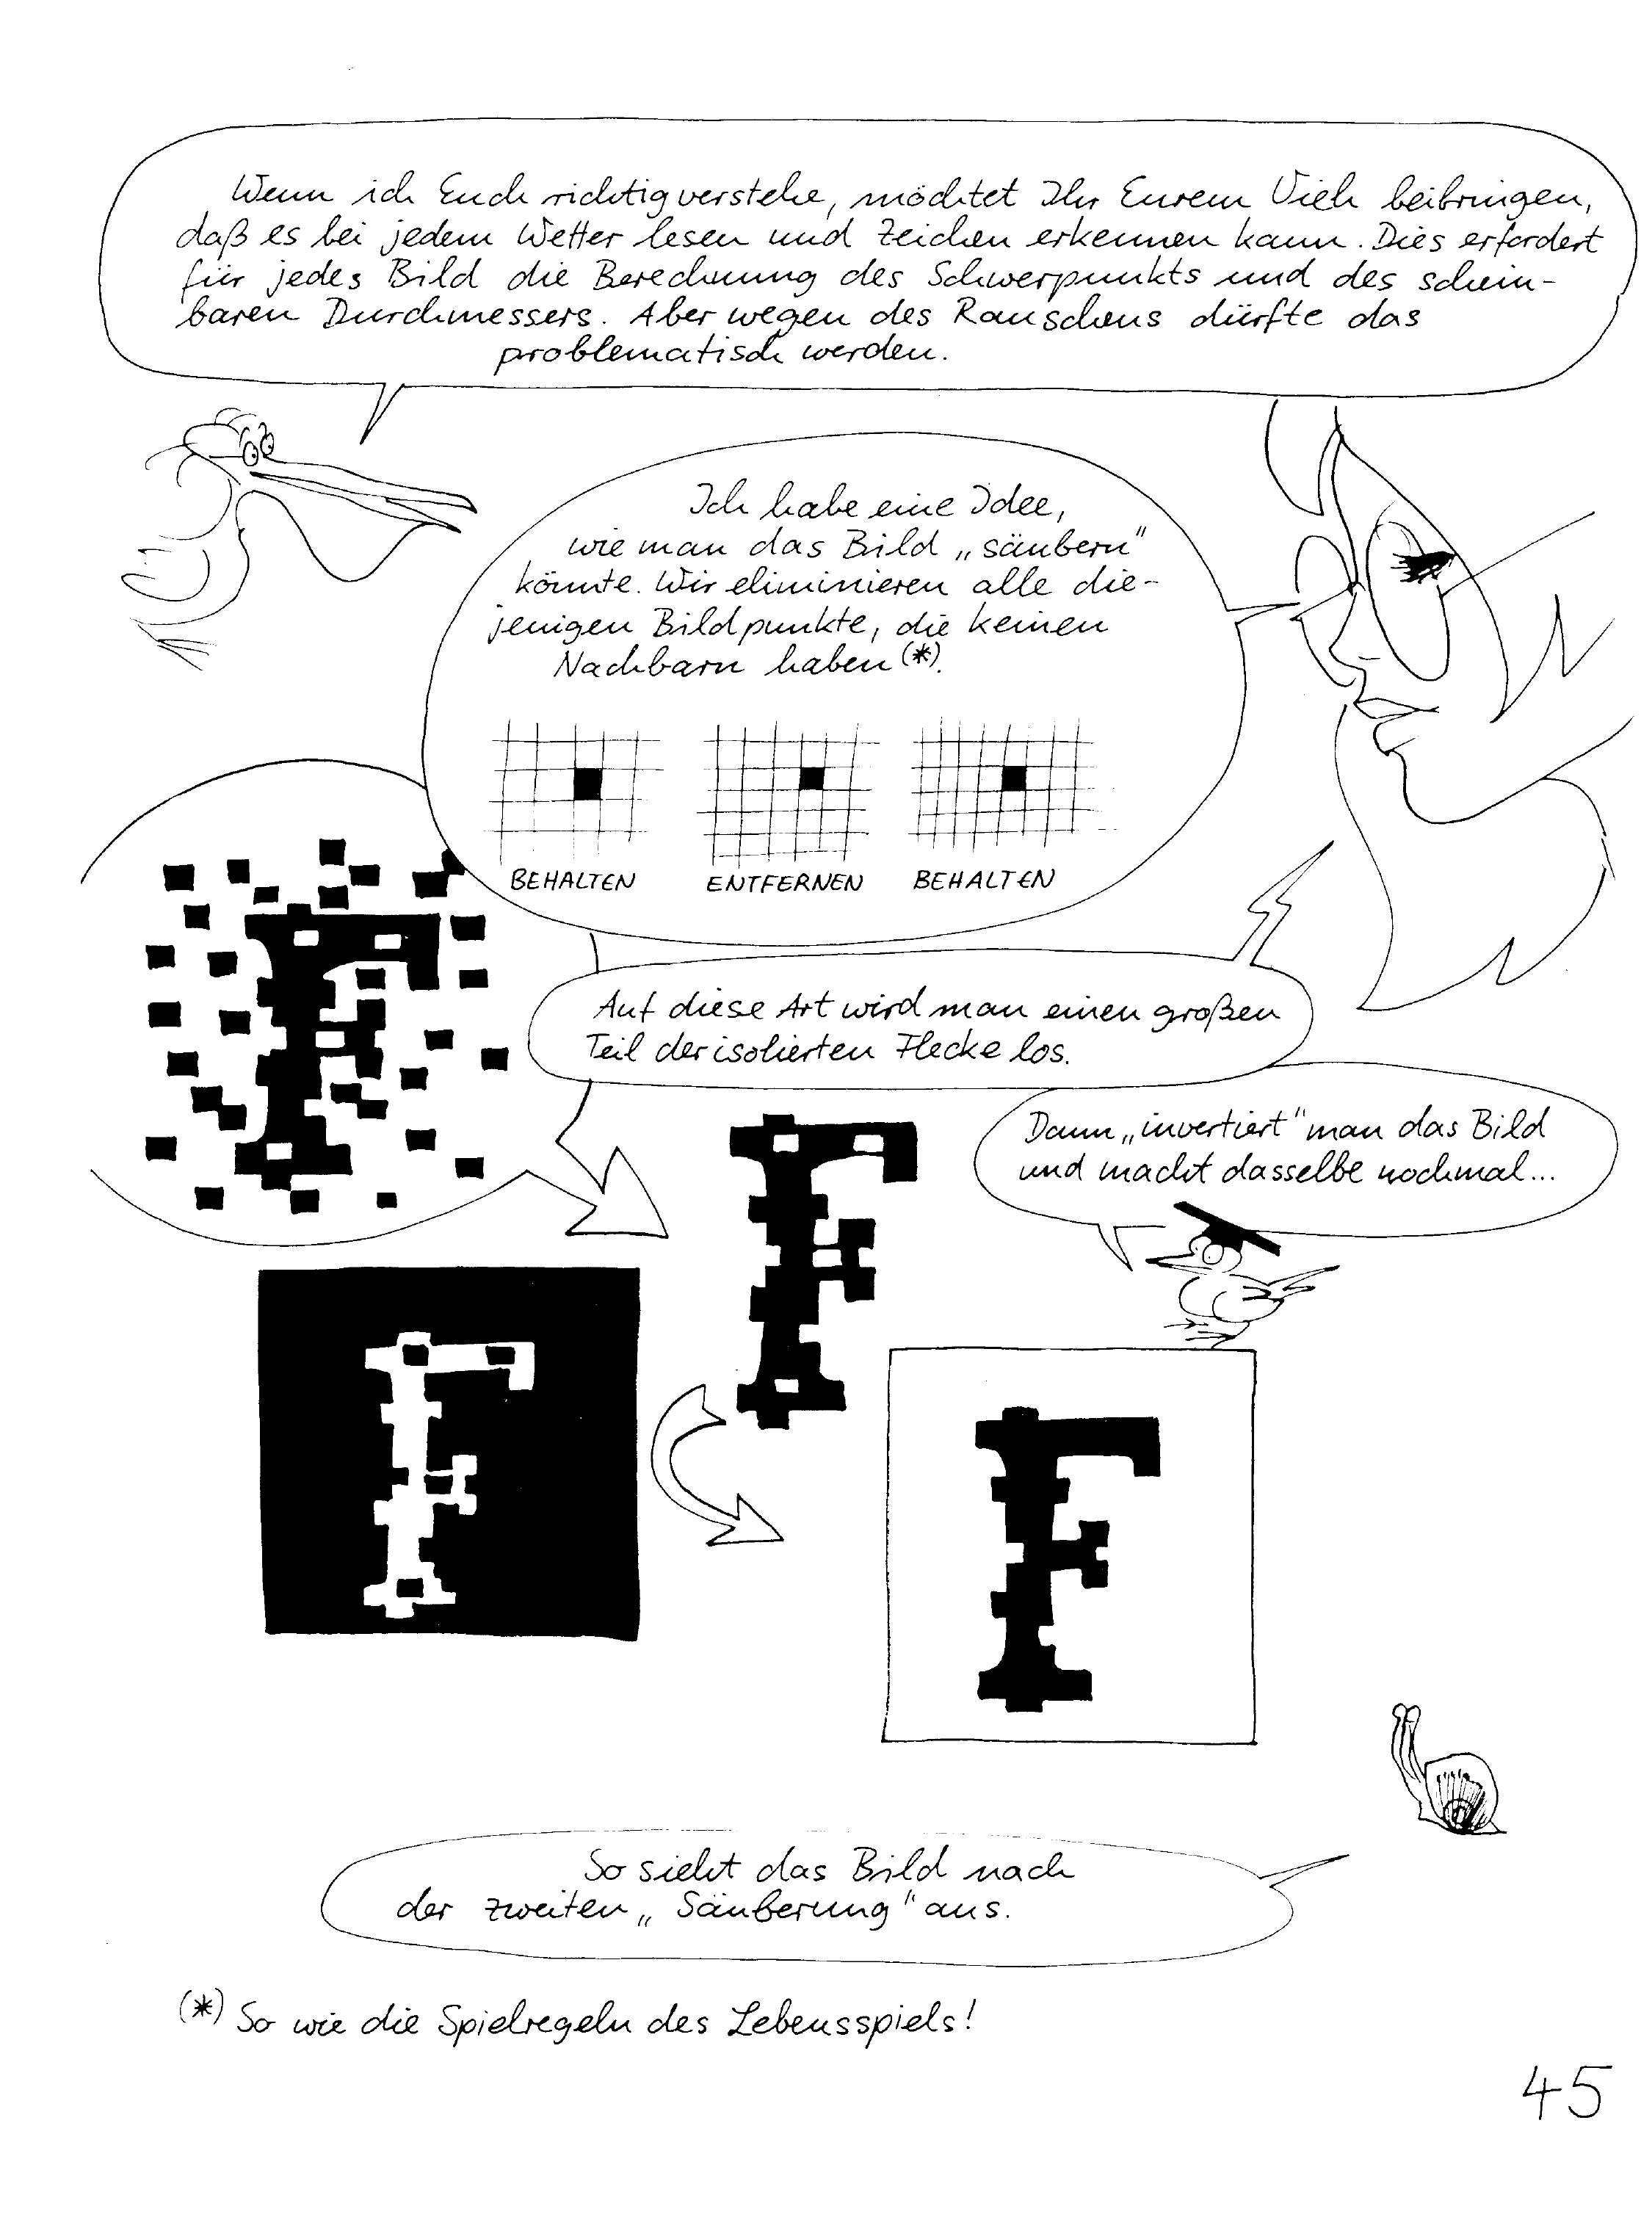 Wenn ich Euch richtig verstehe, möchtet Ihr Eurem Vieh beibringen,
daß es bei jedem Wetter lesen und Zeichen erkennen kann. Dies erfordert
für jedes Bild die Berechnung des Schwerpunkts und des schein-
baren Durchmessers. Aber wegen des Rauschens dürfte das
problematisch werden.
Ich habe eine Idee,
wie man das Bild „säubern"
könnte. Wir eliminieren alle die-
jenigen Bildpunkte, die keinen
Nachbarn haben (*).
BEHALTEN ENTFERNEN BEHALTEN
Auf diese Art wird man einen großen
Teil der isolierten Flecke los.
Dann „invertiert" man das Bild
und macht dasselbe nochmal...
So sieht das Bild nach
der zweiten „Säuberung" aus.
(*) So wie die Spielregeln des Lebensspiels!
45